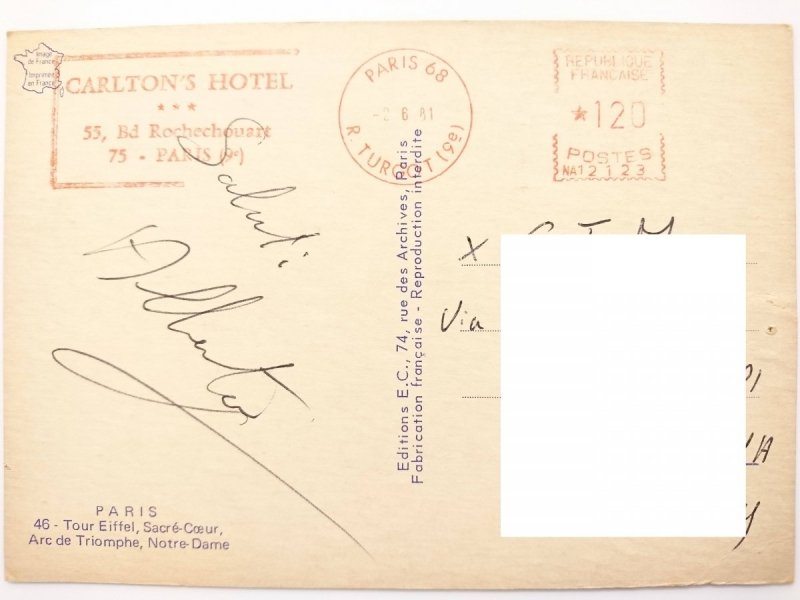 Image
de France
Imprimé
en France
CARLTON'S HOTEL
★ ★ ★
55, Bd Rochechouart
75 - PARIS (9e)
PARIS 68
-2 6 81
R. TURGOT (9e)
REPUBLIQUE
FRANCAISE
★120
POSTES
NA12123
Saluti
Alberto
Editions E.C., 74, rue des Archives, Paris
Fabrication française - Reproduction interdite
X
Via
PARIS
46 - Tour Eiffel, Sacré-Cœur,
Arc de Triomphe, Notre-Dame